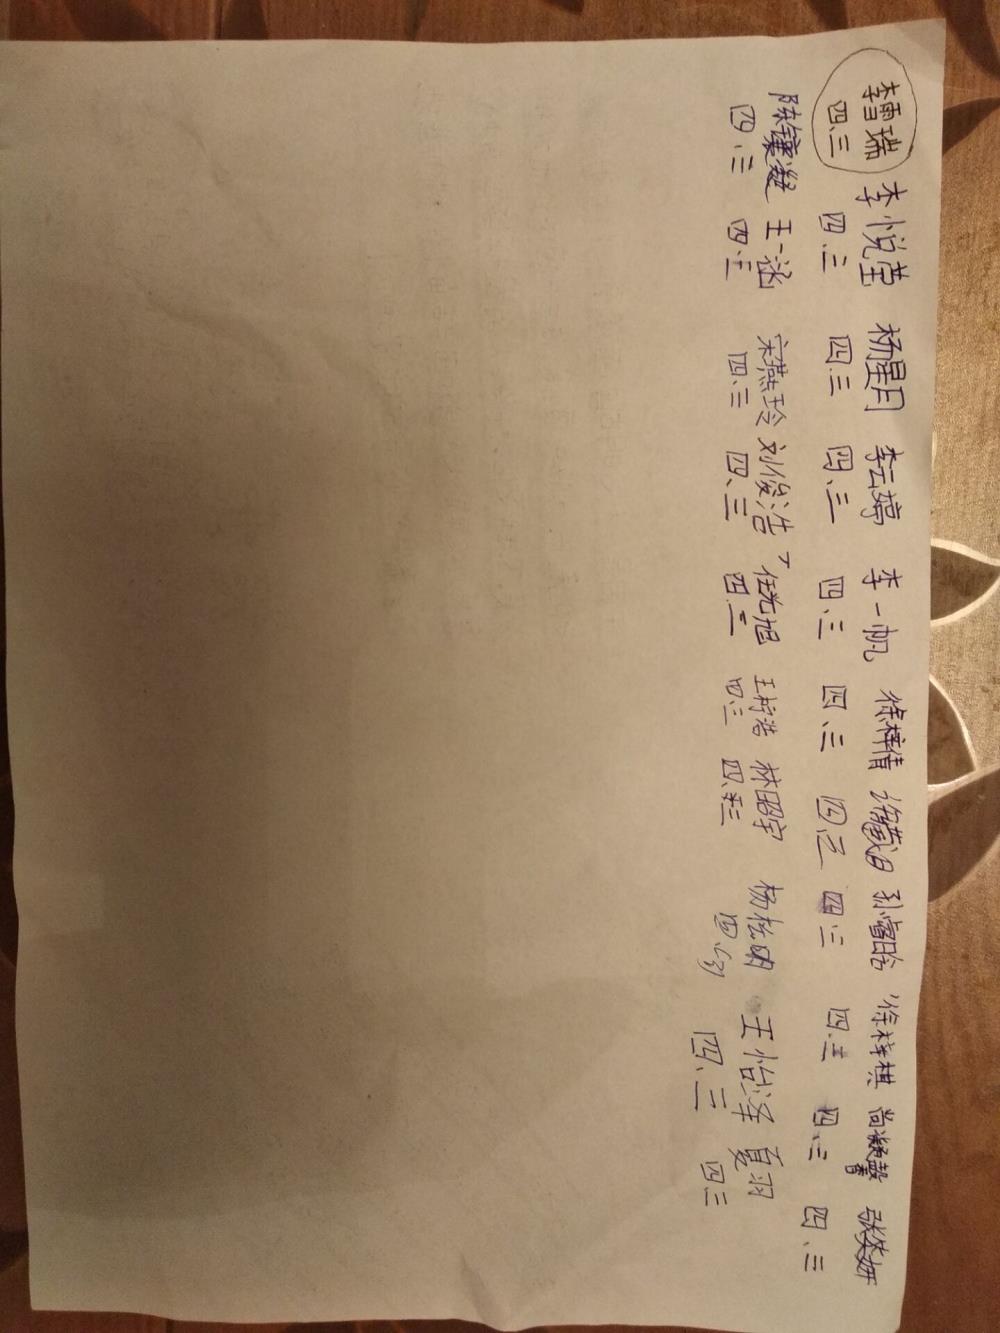 李雪瑞 李悦莹 杨星月 李云婷 李一帆 徐梓倩 孙睿晗 徐梓棋 尚凝馨 张笑妍
四、三 四、三 四、三 四、三 四、三 四、三 四、三 四、三 四、三 四、三 四、三
王一涵 宋燕玲 刘俊浩 任光旭 王柠浩 林昭宇 杨松明 王怡泽 夏羽
四、三 四、三 四、三 四、三 四、三 四、三 四、三 四、(3) 四、三 四三